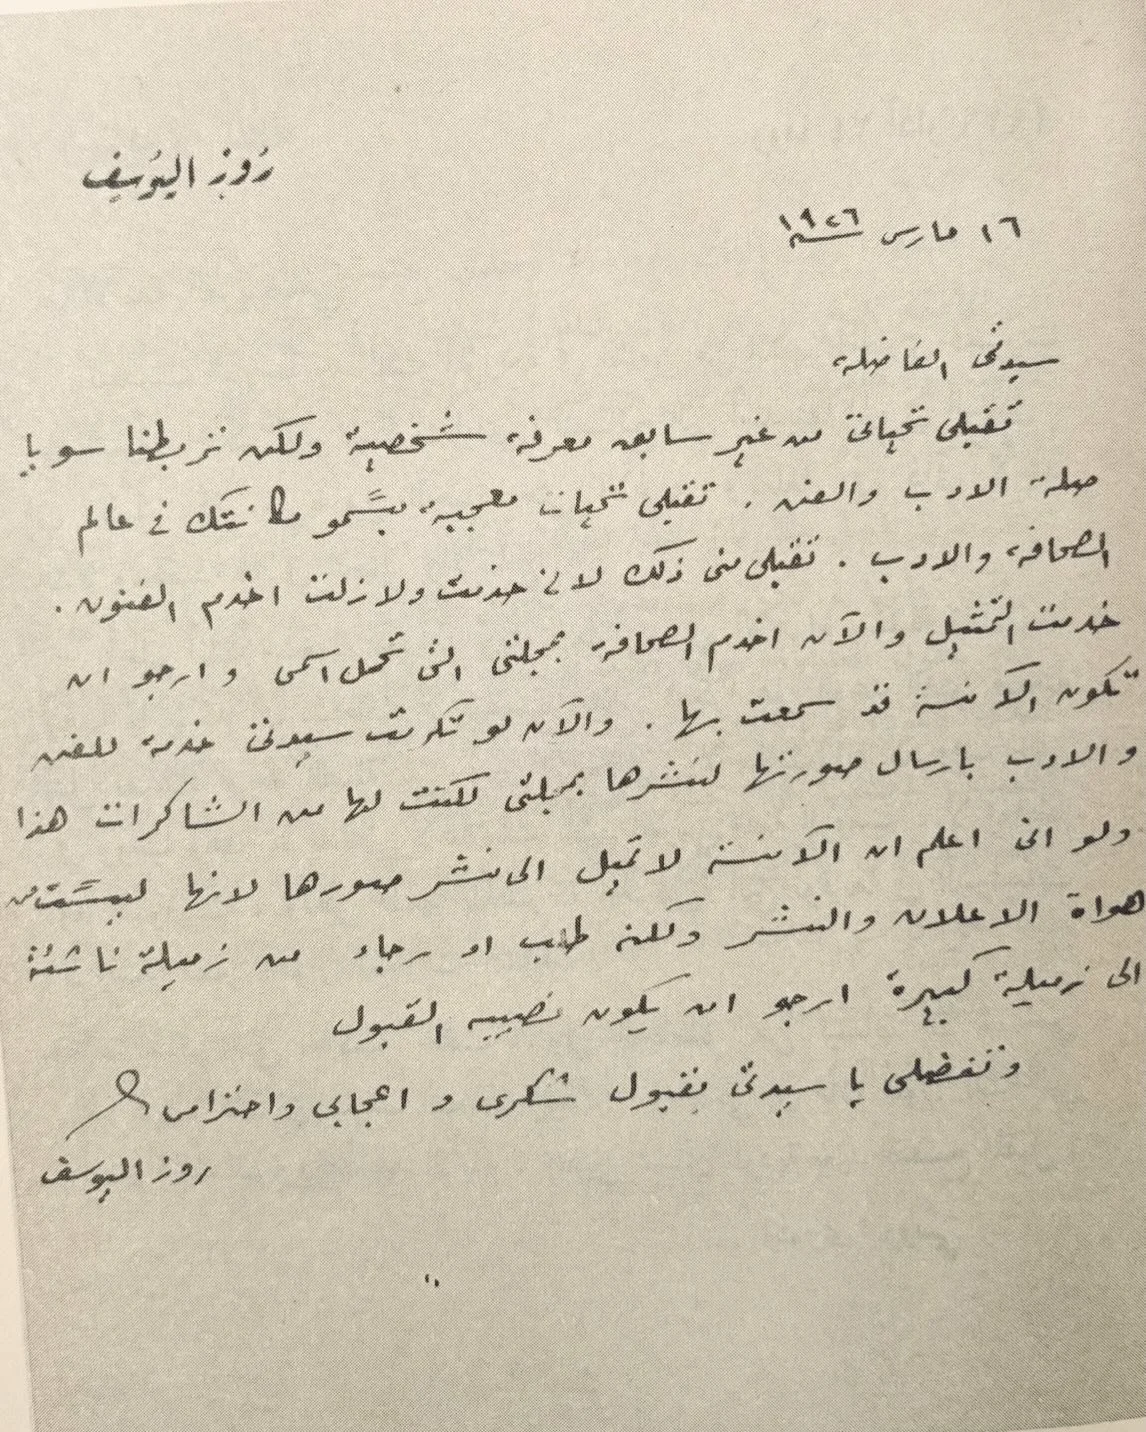 رُوز اليوُسف
١٦ مارس سنة ١٩٢٦
سيدتى الفاضلة
تقبلى تحياتى من غير سابق معرفة شخصية ولكن تربطنا سويا
صلة الادب والفن . تقبلى تحيات معجبة بسمو مكانتك فى عالم
الصحافة والادب . تقبلى منى ذلك لانى خدمت ولا زلت اخدم الفنون .
خدمت التمثيل والآن اخدم الصحافة بمجلتى التى تحمل اسمى وارجو ان
تكون الآنسة قد سمعت بها . والآن لو تكرمت سيدتى خدمة للفن
والادب بارسال صورتها لننشرها بمجلتى لكنت لها من الشاكرات هذا
ولو انى اعلم ان الآنسة لا تميل الى نشر صورها لانها ليست من
هواة الاعلان والنشر ولكنه طلب او رجاء من زميلة ناشئة
الى زميلة كبيرة ارجو ان يكون نصيبه القبول
وتفضلى يا سيدتى بقبول شكرى و اعجابى واحترامى
روز اليوسف